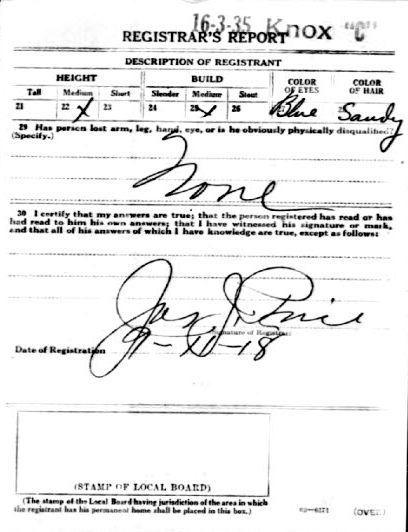 16-3-35 Knox "C"
REGISTRAR'S REPORT
DESCRIPTION OF REGISTRANT
HEIGHT BUILD COLOR OF EYES COLOR OF HAIR
Tall Medium Short Slender Medium Stout
21 22 X 23 24 25 X 26 Blue Sandy
29 Has person lost arm, leg, hand, eye, or is he obviously physically disqualified?
(Specify.)
None
30 I certify that my answers are true; that the person registered has read or has
had read to him his own answers; that I have witnessed his signature or mark,
and that all of his answers of which I have knowledge are true, except as follows:
Signature of Registrar
Date of Registration 9-12-18
(STAMP OF LOCAL BOARD)
(The stamp of the Local Board having jurisdiction of the area in which
the registrant has his permanent home shall be placed in this box.)
(OVER)